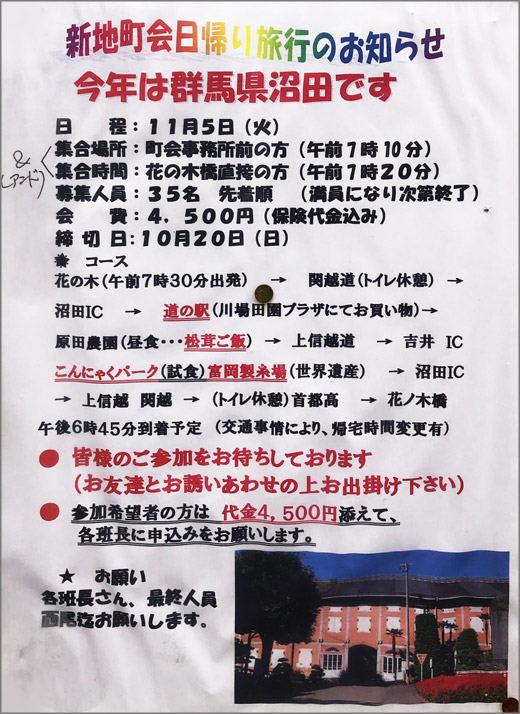 新地町会日帰り旅行のお知らせ
今年は群馬県沼田です
日　　程：１１月５日（火）
集合場所：町会事務所前の方（午前７時１０分）
&（アンド）
集合時間：花の木橋直接の方（午前７時２０分）
募集人員：３５名　先着順　（満員になり次第終了）
会　　費：４．５００円（保険代金込み）
締 切 日：１０月２０日（日）
★　コース
花の木（午前７時３０分出発）　→　関越道（トイレ休憩）　→
沼田IC　→　道の駅（川場田園プラザにてお買い物）→
原田農園（昼食･･･松茸ご飯）　→　上信越道　→　吉井 IC
こんにゃくパーク（試食）富岡製糸場（世界遺産）　→　沼田IC
→　上信越 関越　→　（トイレ休憩）首都高　→　花ノ木橋
午後６時４５分到着予定　（交通事情により、帰宅時間変更有）
● 皆様のご参加をお待ちしております
（お友達とお誘いあわせの上お出掛け下さい）
● 参加希望者の方は 代金４，５００円添えて、
各班長に申込みをお願いします。
★　お願い
各班長さん、最終人員
西尾迄お願いします。